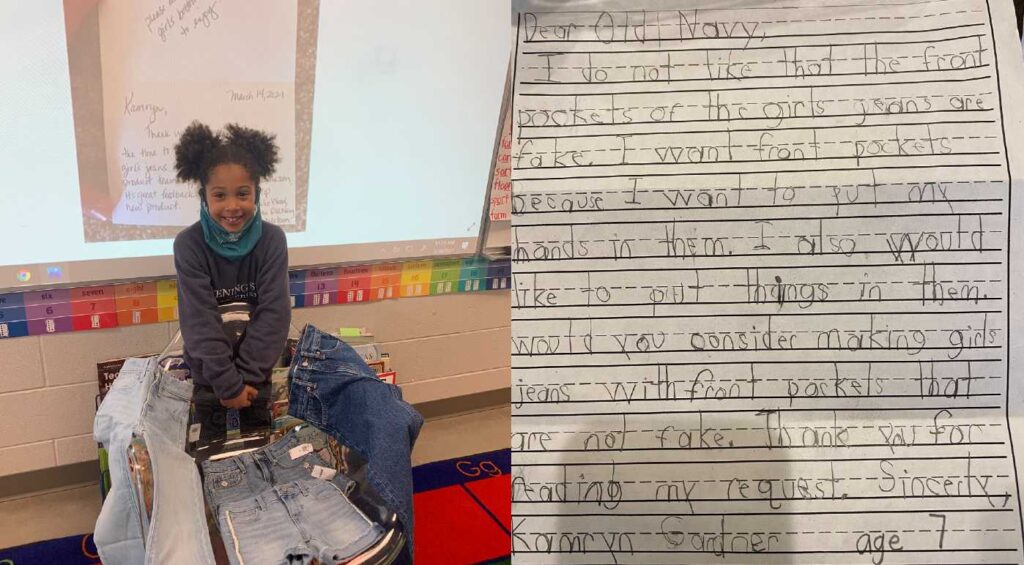 Please
girls
to enjoy
Kamryn,
Thank
the time to
girls jeans
product team
It's great feedback
new product.
six seven
6 7
thirteen fourteen
13 14 15 16 17
ENING'S
Gg
Dear Old Navy,
I do not like that the front
pockets of the girls jeans are
fake. I want front pockets
because I want to put my
hands in them. I also would
like to put things in them.
would you consider making girls
jeans with front pockets that
are not fake. Thank you for
reading my request. Sincerly,
Kamryn Gardner age 7